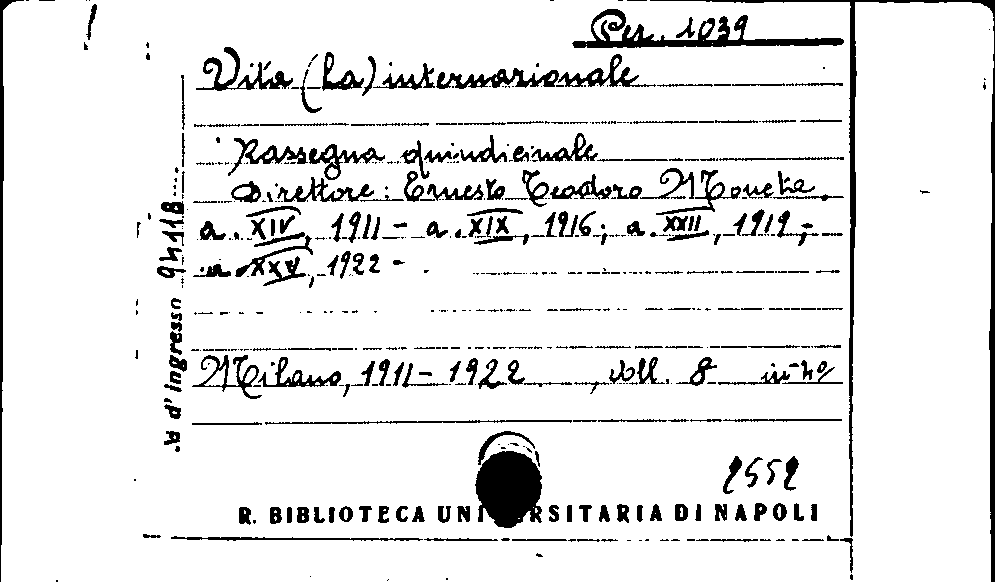 Per. 1039
Vita (La) internazionale
Rassegna quindicinale
Direttore: Ernesto Teodoro Moneta.
a. XIV, 1911 - a. XIX, 1916; a. XXII, 1919;-
a XXV, 1922 - .
Milano, 1911-1922 , voll. 8 in-4º
N. d'ingresso 94118
2552
R. BIBLIOTECA UNIVERSITARIA DI NAPOLI